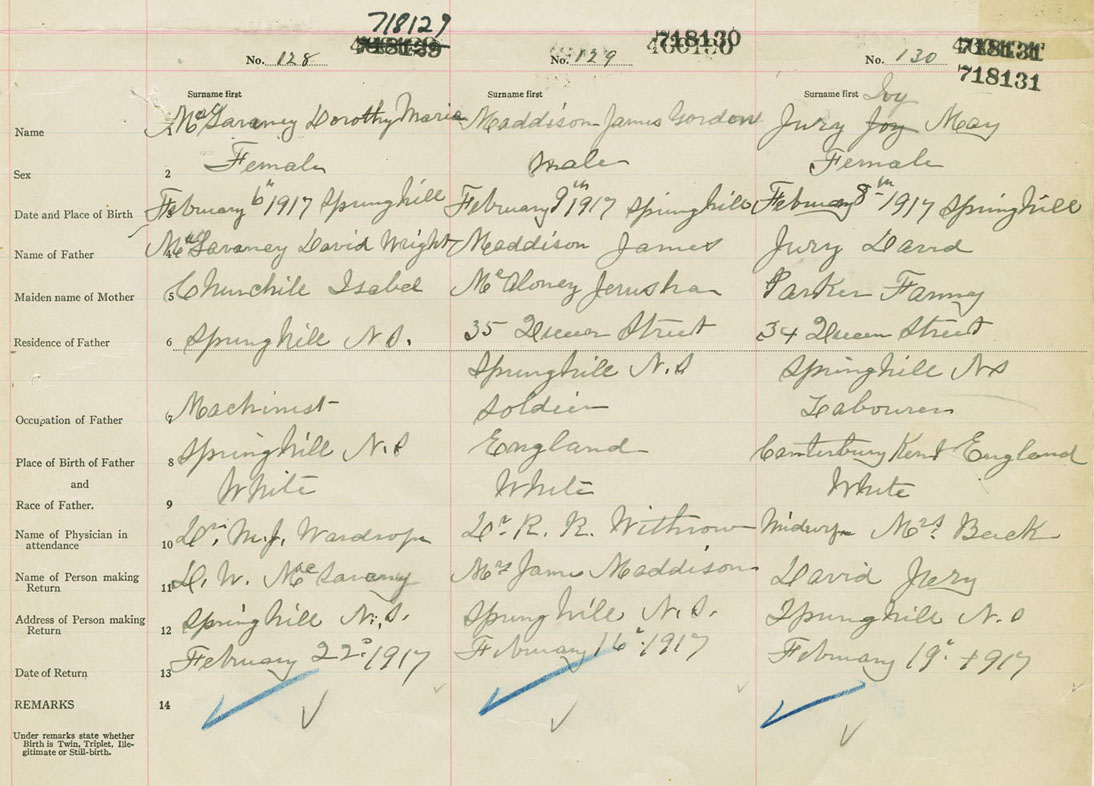 718129
718130
718131
No. 128
No. 129
No. 130
718131
Surname first
Surname first
Surname first
Ivy
Name
Dorothy Maria
Maddison James Gordon
Jury Joy May
Sex
2
Female
male
Female
Date and Place of Birth
3
February 6th 1917 Springhill
February 9th 1917 Springhill
February 8th 1917 Springhill
Name of Father
4
David Wright
Maddison James
Jury David
Maiden name of Mother
5
Churchile Isabel
McAloney Jerusha
Parker Fanny
Residence of Father
6
Springhill N.S.
35 Queen Street
34 Queen Street
Springhill N.S
Springhill NS
Occupation of Father
7
Machinist
Soldier
Labourer
Place of Birth of Father
8
Springhill N.S
England
Canterbury Kent England
and
Race of Father.
9
White
White
White
Name of Physician in
attendance
10
Dr. M.J. Wardrope
Dr R. R. Withrow
Midwife Mrs. Beck
Name of Person making
Return
11
D. W.
Mrs James Maddison
David Jury
Address of Person making
Return
12
Springhill N.S.
Springhill N.S.
Springhill N.S
Date of Return
13
February 22d 1917
February 16th 1917
February 19th 1917
REMARKS
14
Under remarks state whether
Birth is Twin, Triplet, Ille-
gitimate or Still-birth.